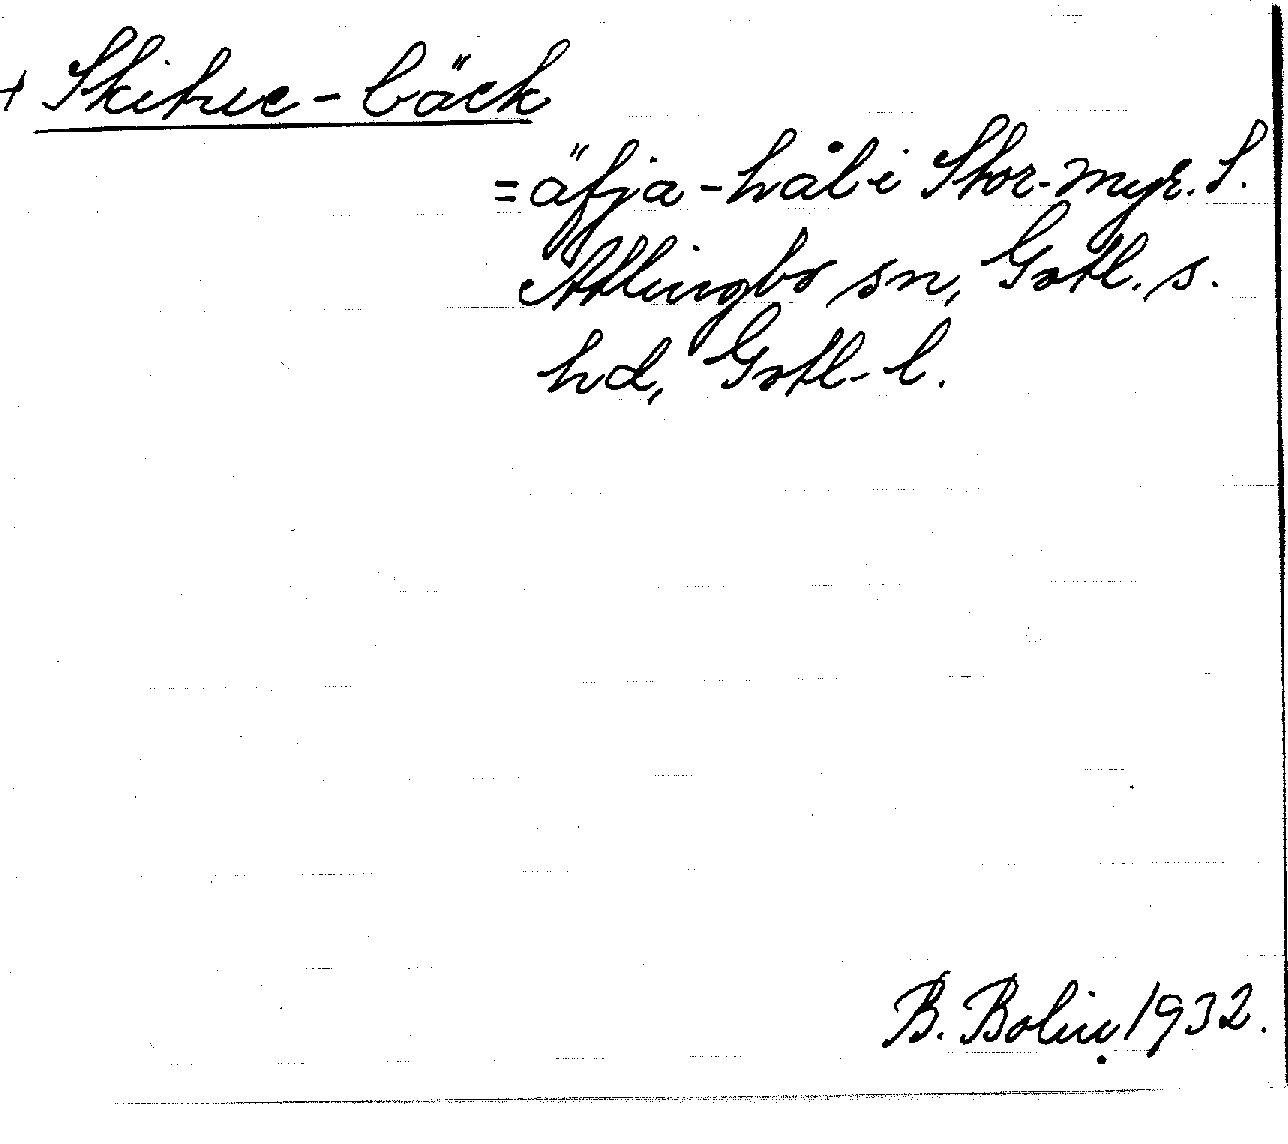 + Skitue-bäck
= äfja-hål i Stor-myr. S.
Atlingbo sn, Gotl. s.
hd, Gotl. l.
B. Bolin 1932.